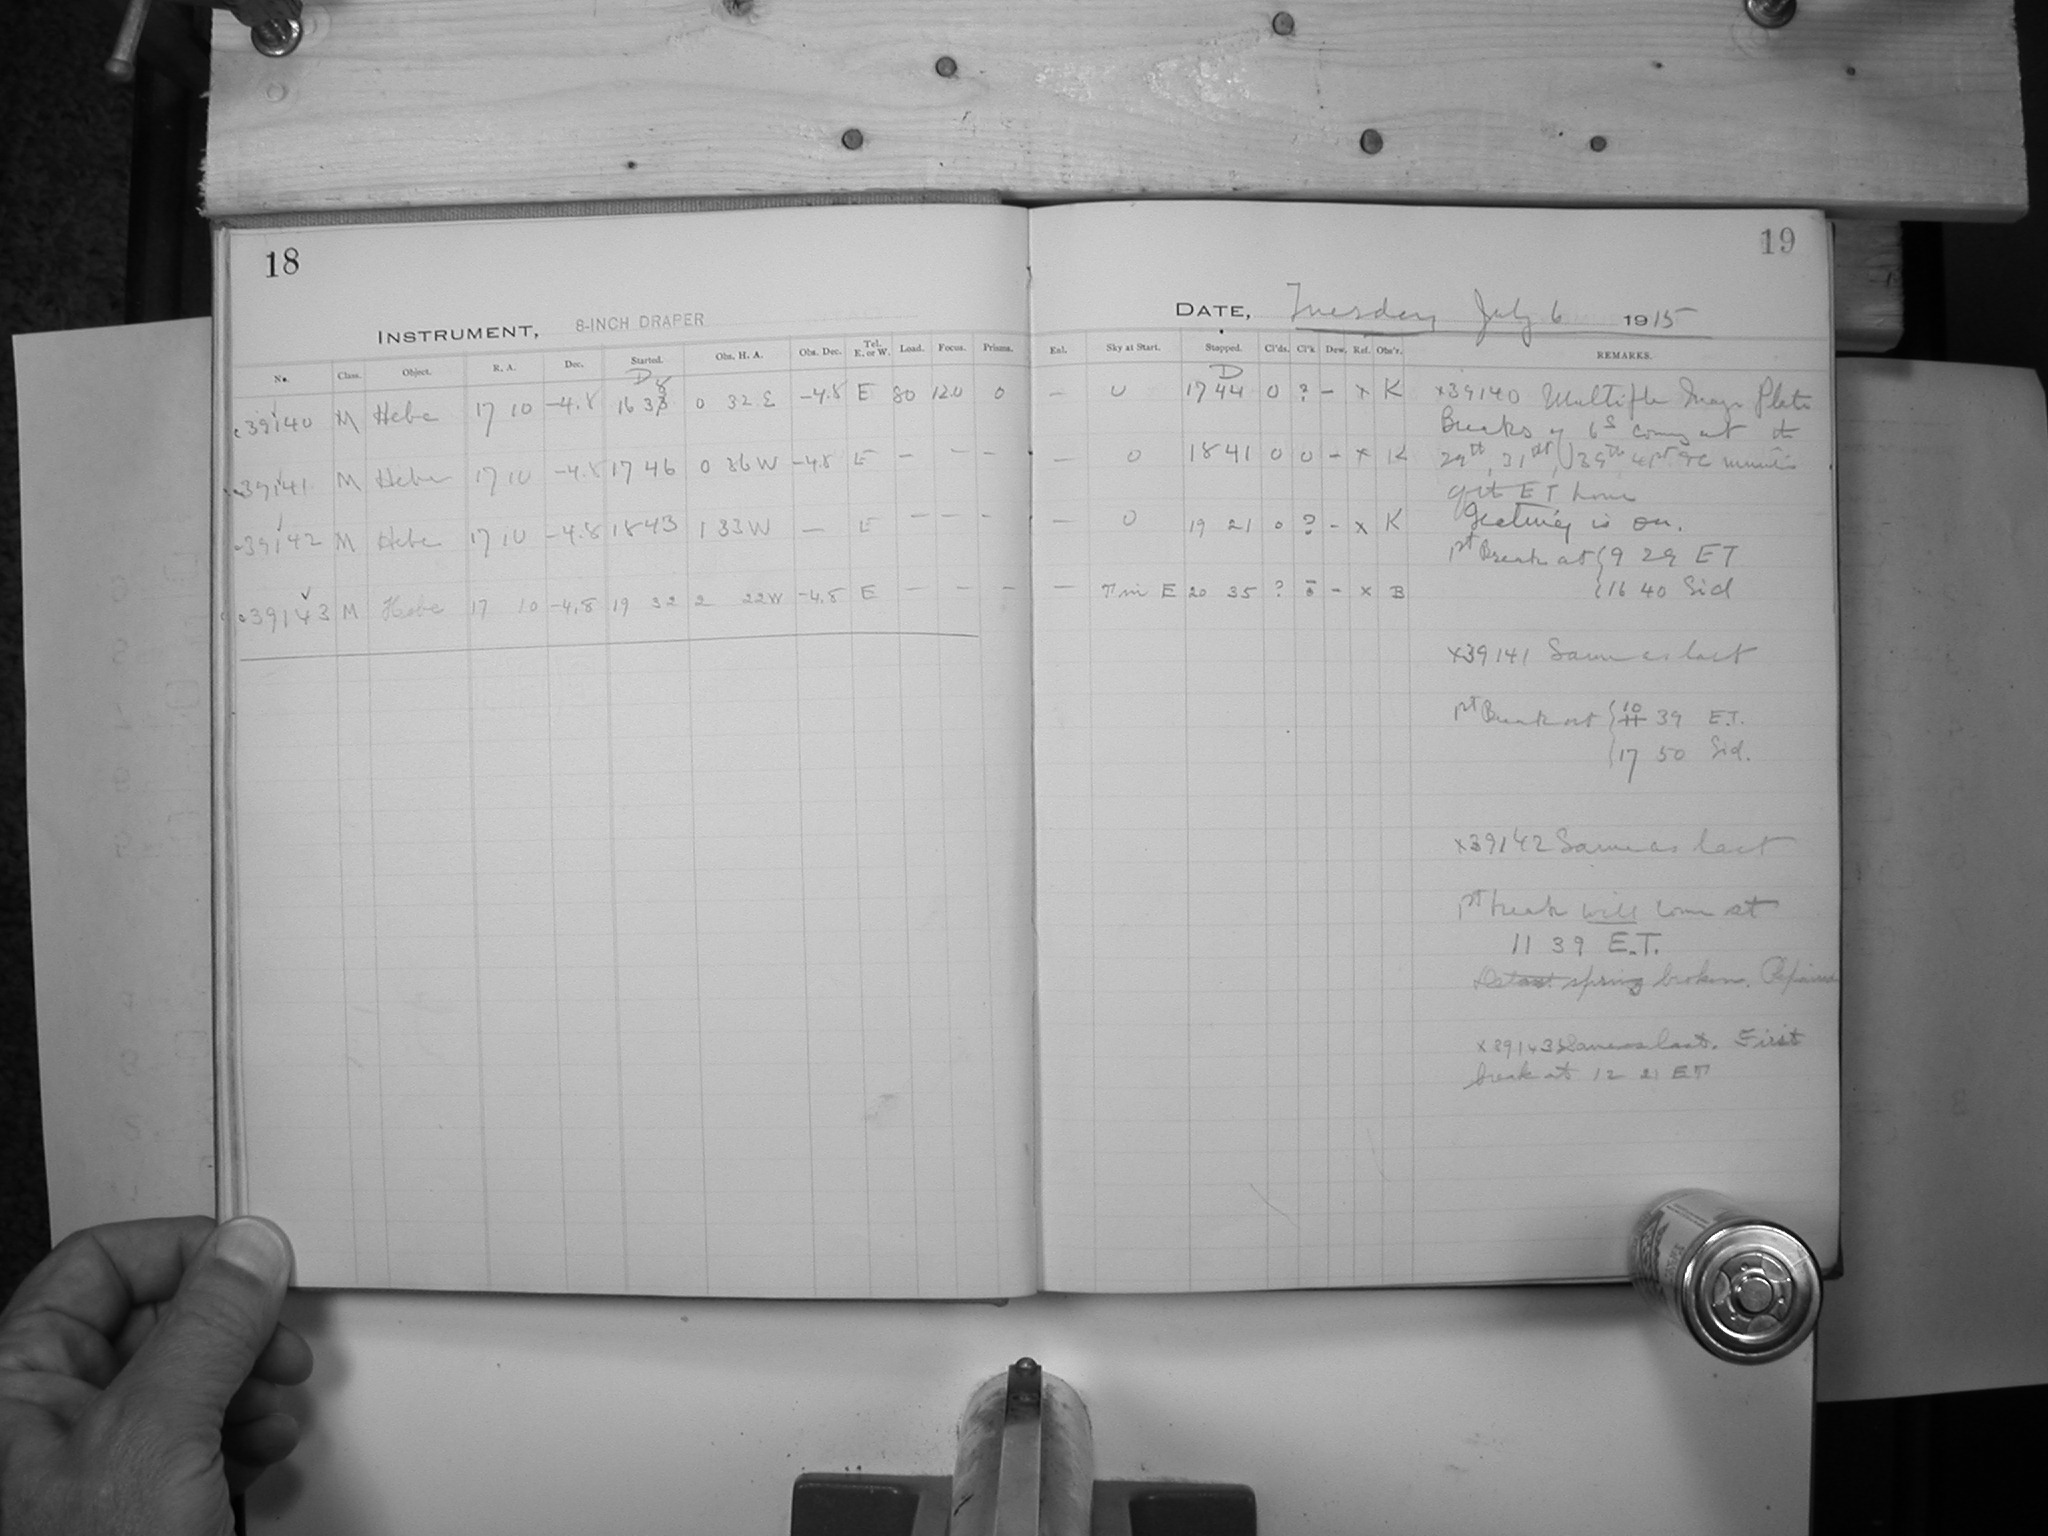 18
19
INSTRUMENT, 8-INCH DRAPER
DATE, Tuesday July 6 1915
No. Class. Object. R. A. Dec. Started. Obs. H. A. Obs. Dec. Tel. E. or W. Load. Focus. Prisms. Enl. Sky at Start. Stopped. Cl'ds. Cl'k Dew. Ref. Obs'r. REMARKS.
D D
39140 M Hebe 17 10 -4.8 16 38 0 32 E -4.8 E 80 12.0 0 — 0 17 44 0 ? - x K
39141 M Hebe 17 10 -4.8 17 46 0 36 W -4.8 E — — — — 0 18 41 0 0 - x K
39142 M Hebe 17 10 -4.8 18 43 1 33 W — E — — — — 0 19 21 0 ? - x K
39143 M Hebe 17 10 -4.8 19 32 2 22 W -4.8 E — — — — E 20 35 ? - x B
x39140 Multiple Plate
Breaks of 6s at
29th, 31st, 39th 41st minutes
ET hour
is on.
1st Break at 9 29 ET
16 40 Sid
x39141 Same as last
1st Break at 10 39 E.T.
17 50 Sid.
x39142 Same as last
1st break will come at
11 39 E.T.
spring broken. Repaired
x39143 Same as last. First
break at 12 21 ET